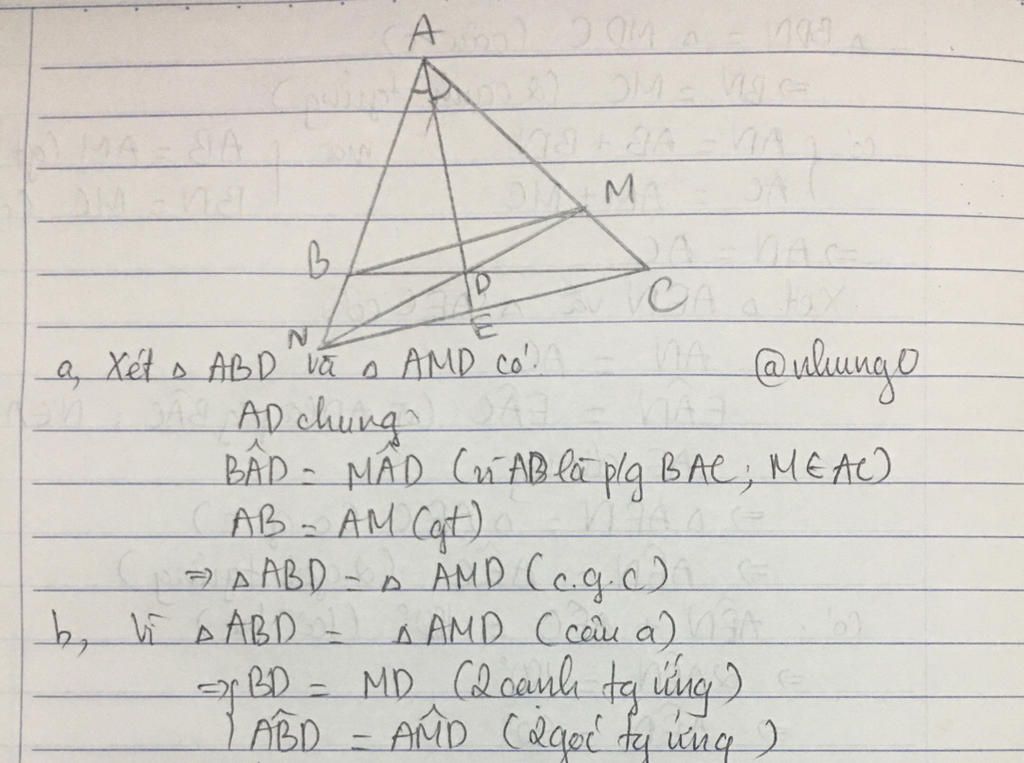 A
M
B
D
C
N
E
a, Xét △ ABD và △ AMD có:
@nhung0
AD chung
BÂD = MÂD (vì AB là p/g BAC; M∈AC)
AB = AM (gt)
⇒ △ABD = △ AMD (c.g.c)
b, Vì △ ABD = △AMD (câu a)
⇒{ BD = MD (2 cạnh tg ứng)
AB̂D = AM̂D (2 góc tg ứng)